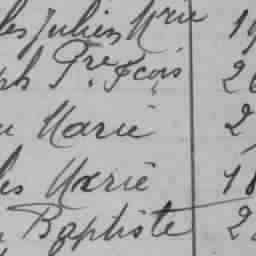 les Julien Mrie 19
ph Pre Fçois 2
Marie 2
les Marie 18
Baptiste 2